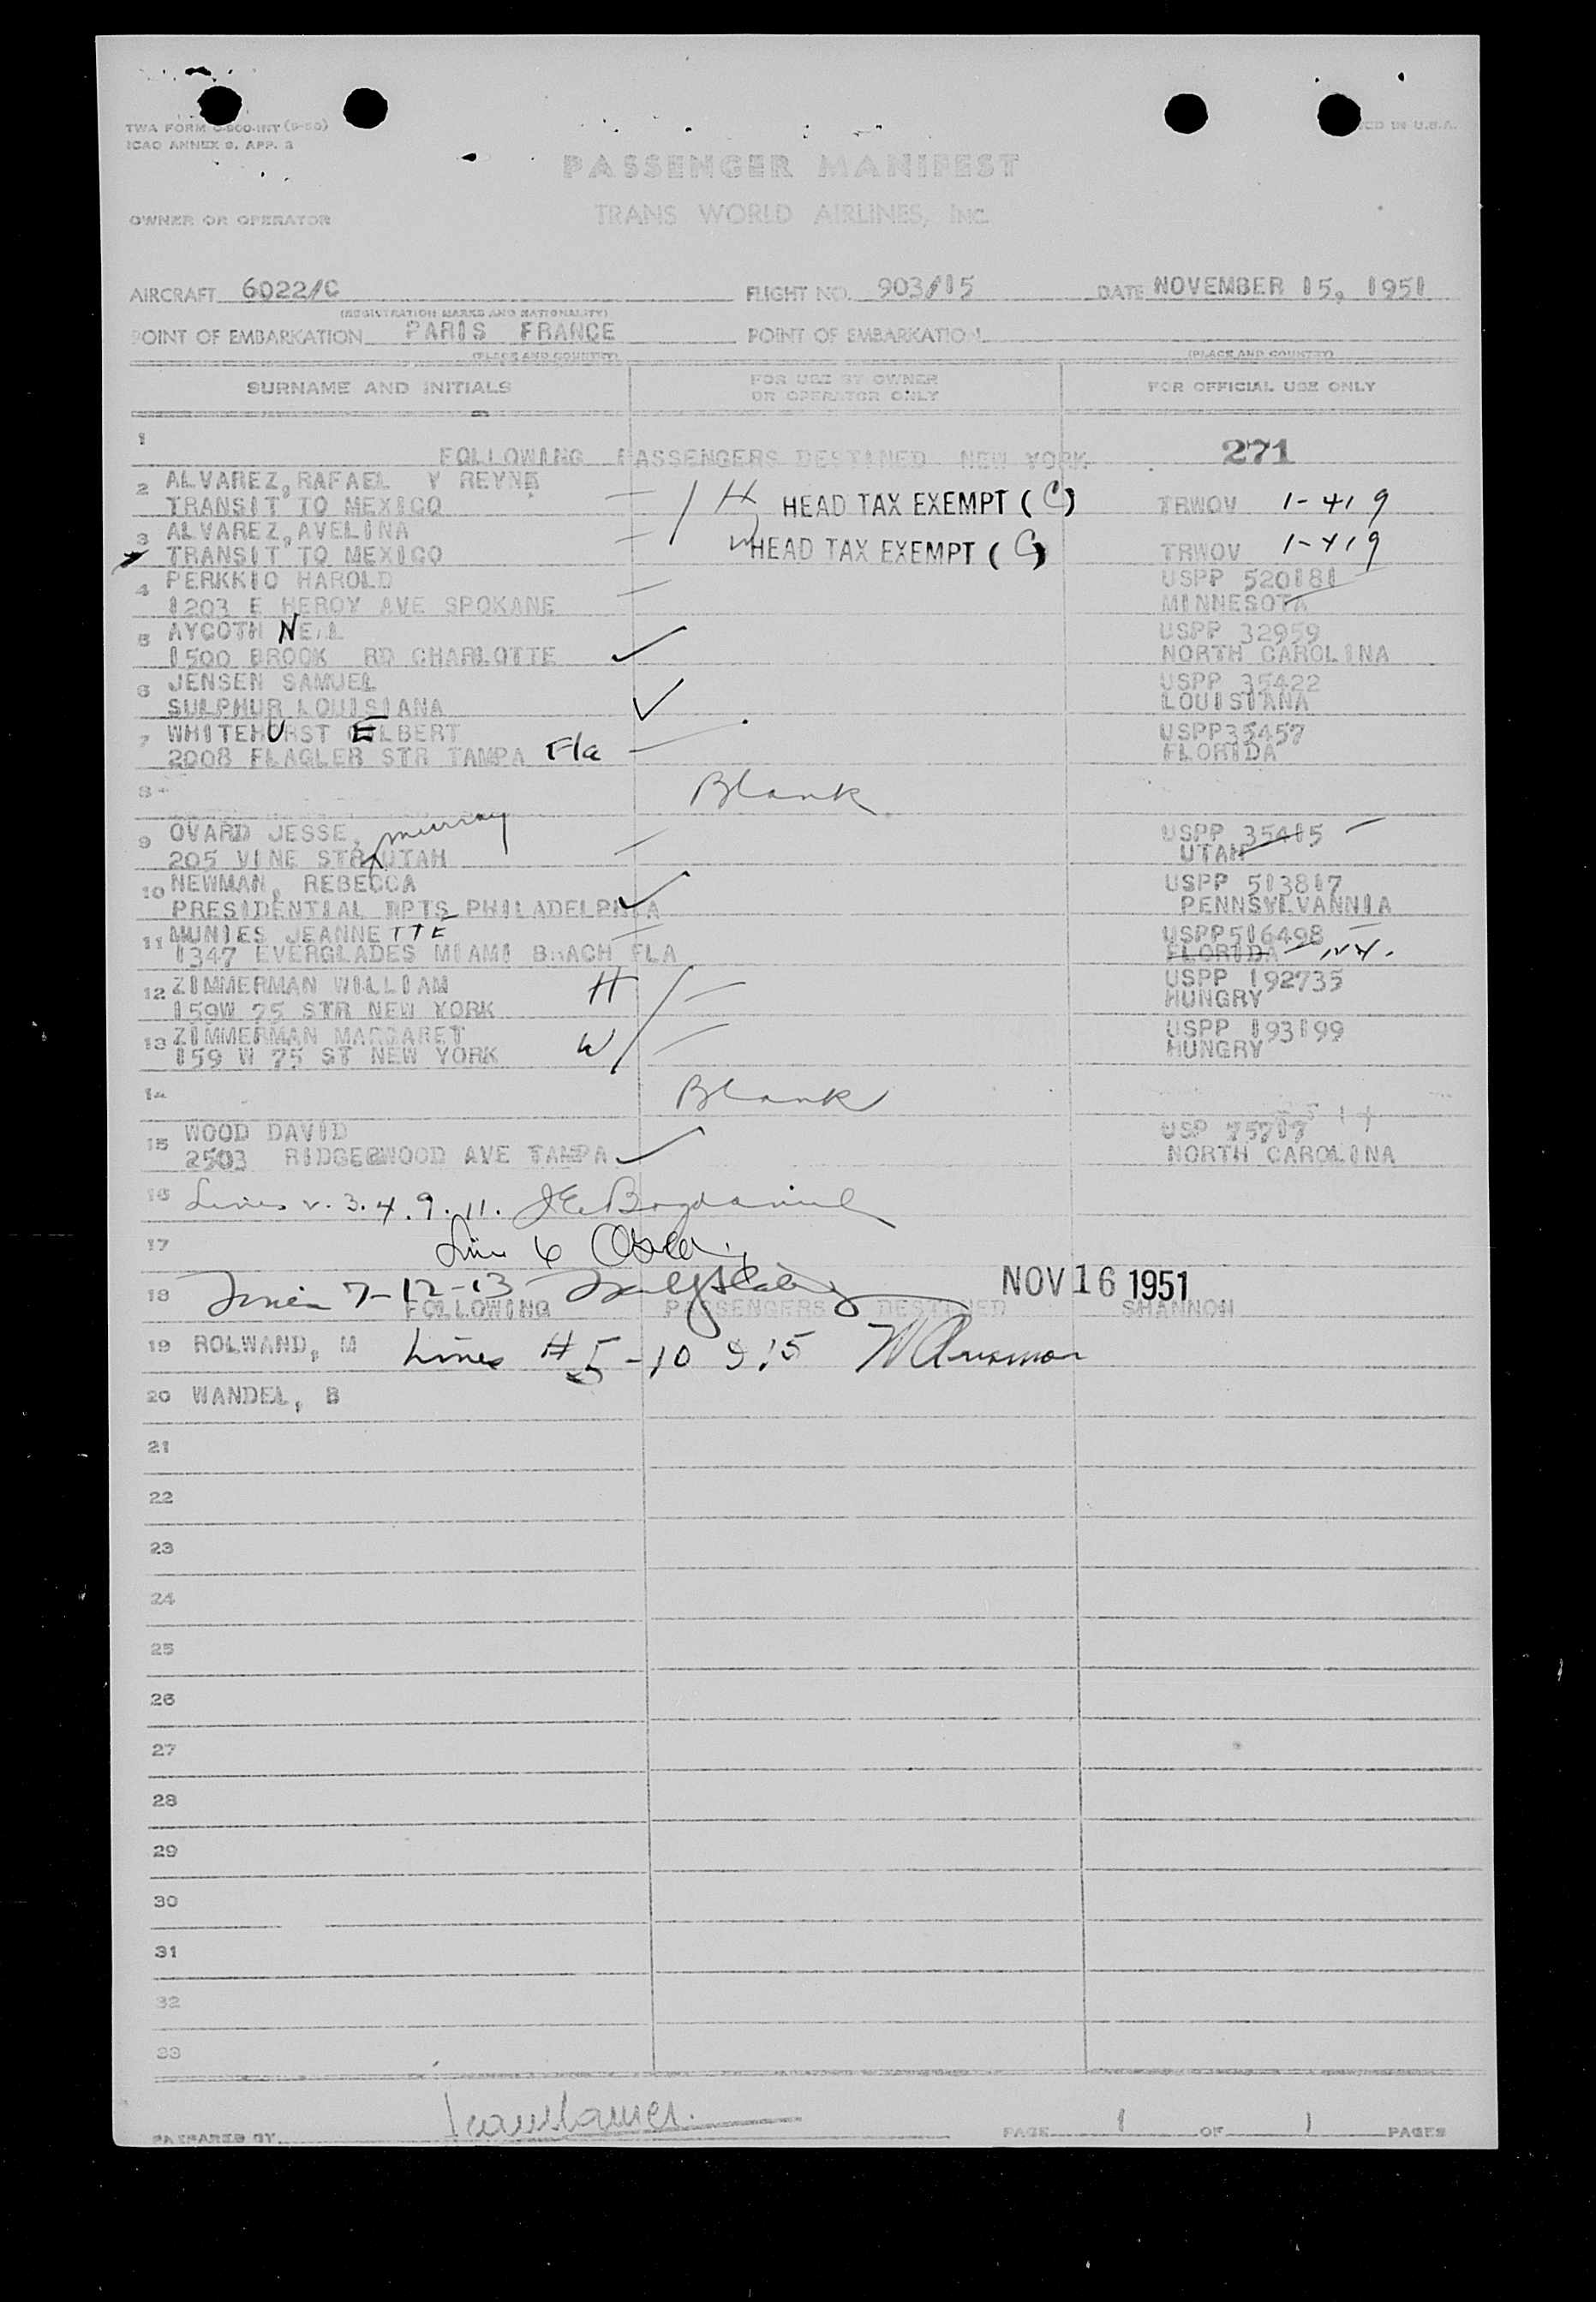 TWA FORM C-900-INT (5-50)
ICAO ANNEX 9, APP. 3
IN U.S.A.
PASSENGER MANIFEST
OWNER OR OPERATOR TRANS WORLD AIRLINES, INC.
AIRCRAFT 6022/C FLIGHT NO. 903/15 DATE NOVEMBER 15, 1951
(REGISTRATION MARKS AND NATIONALITY)
POINT OF EMBARKATION PARIS FRANCE POINT OF EMBARKATION
(PLACE AND COUNTRY) (PLACE AND COUNTRY)
SURNAME AND INITIALS FOR USE BY OWNER OR OPERATOR ONLY FOR OFFICIAL USE ONLY
1 FOLLOWING PASSENGERS DESTINED NEW YORK 271
2 ALVAREZ, RAFAEL Y REYNE
TRANSIT TO MEXICO H HEAD TAX EXEMPT (C) TRWOV 1-419
3 ALVAREZ, AVELINA
TRANSIT TO MEXICO W HEAD TAX EXEMPT (C) TRWOV 1-419
4 PERKKIO HAROLD USPP 520181
1203 E HEROY AVE SPOKANE MINNESOTA
5 AYCOTH NEIL USPP 32959
1500 BROOK RD CHARLOTTE NORTH CAROLINA
6 JENSEN SAMUEL USPP 35422
SULPHUR LOUISIANA LOUISIANA
7 WHITEHURST ELBERT USPP35457
2008 FLAGLER STR TAMPA Fla FLORIDA
8 Blank
9 OVARD JESSE, USPP 35415
205 VINE STR murray UTAH UTAH
10 NEWMAN, REBECCA USPP 513817
PRESIDENTIAL APTS PHILADELPHIA PENNSYLVANNIA
11 MUNIES JEANNETTE USPP516498
1347 EVERGLADES MIAMI BEACH FLA FLORIDA N.Y.
12 ZIMMERMAN WILLIAM H USPP 192735
159W 75 STR NEW YORK HUNGRY
13 ZIMMERMAN MARGARET W USPP 193199
159 W 75 ST NEW YORK HUNGRY
14 Blank
15 WOOD DAVID USP 75717
2503 RIDGEEWOOD AVE TAMPA NORTH CAROLINA
16 Lines 2. 3. 4. 9. 11.
17 Line 6
18 Lines 7-12-13 NOV 16 1951
FOLLOWING PASSENGERS DESTINED SHANNON
19 ROLWAND, M Lines # 5-10 & 15
20 WANDEL, B
21
22
23
24
25
26
27
28
29
30
31
32
33
PREPARED BY PAGE 1 OF 1 PAGES